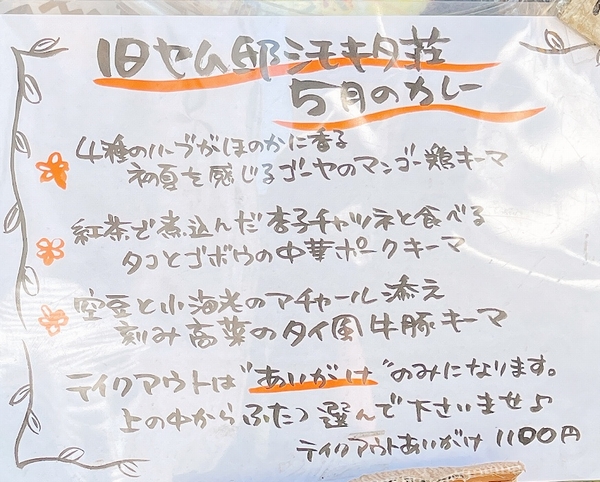 旧ヤム邸シモキタ荘
5月のカレー
4種のハーブがほのかに香る
初夏を感じるゴーヤのマンゴー鶏キーマ
紅茶で煮込んだ杏子チャツネと食べる
タコとゴボウの中華ポークキーマ
空豆と小海老のアチャール添え
刻み高菜のタイ風牛豚キーマ
テイクアウトは"あいがけ"のみになります。
上の中からふたつ選んで下さいませ♪
テイクアウトあいがけ 1100円